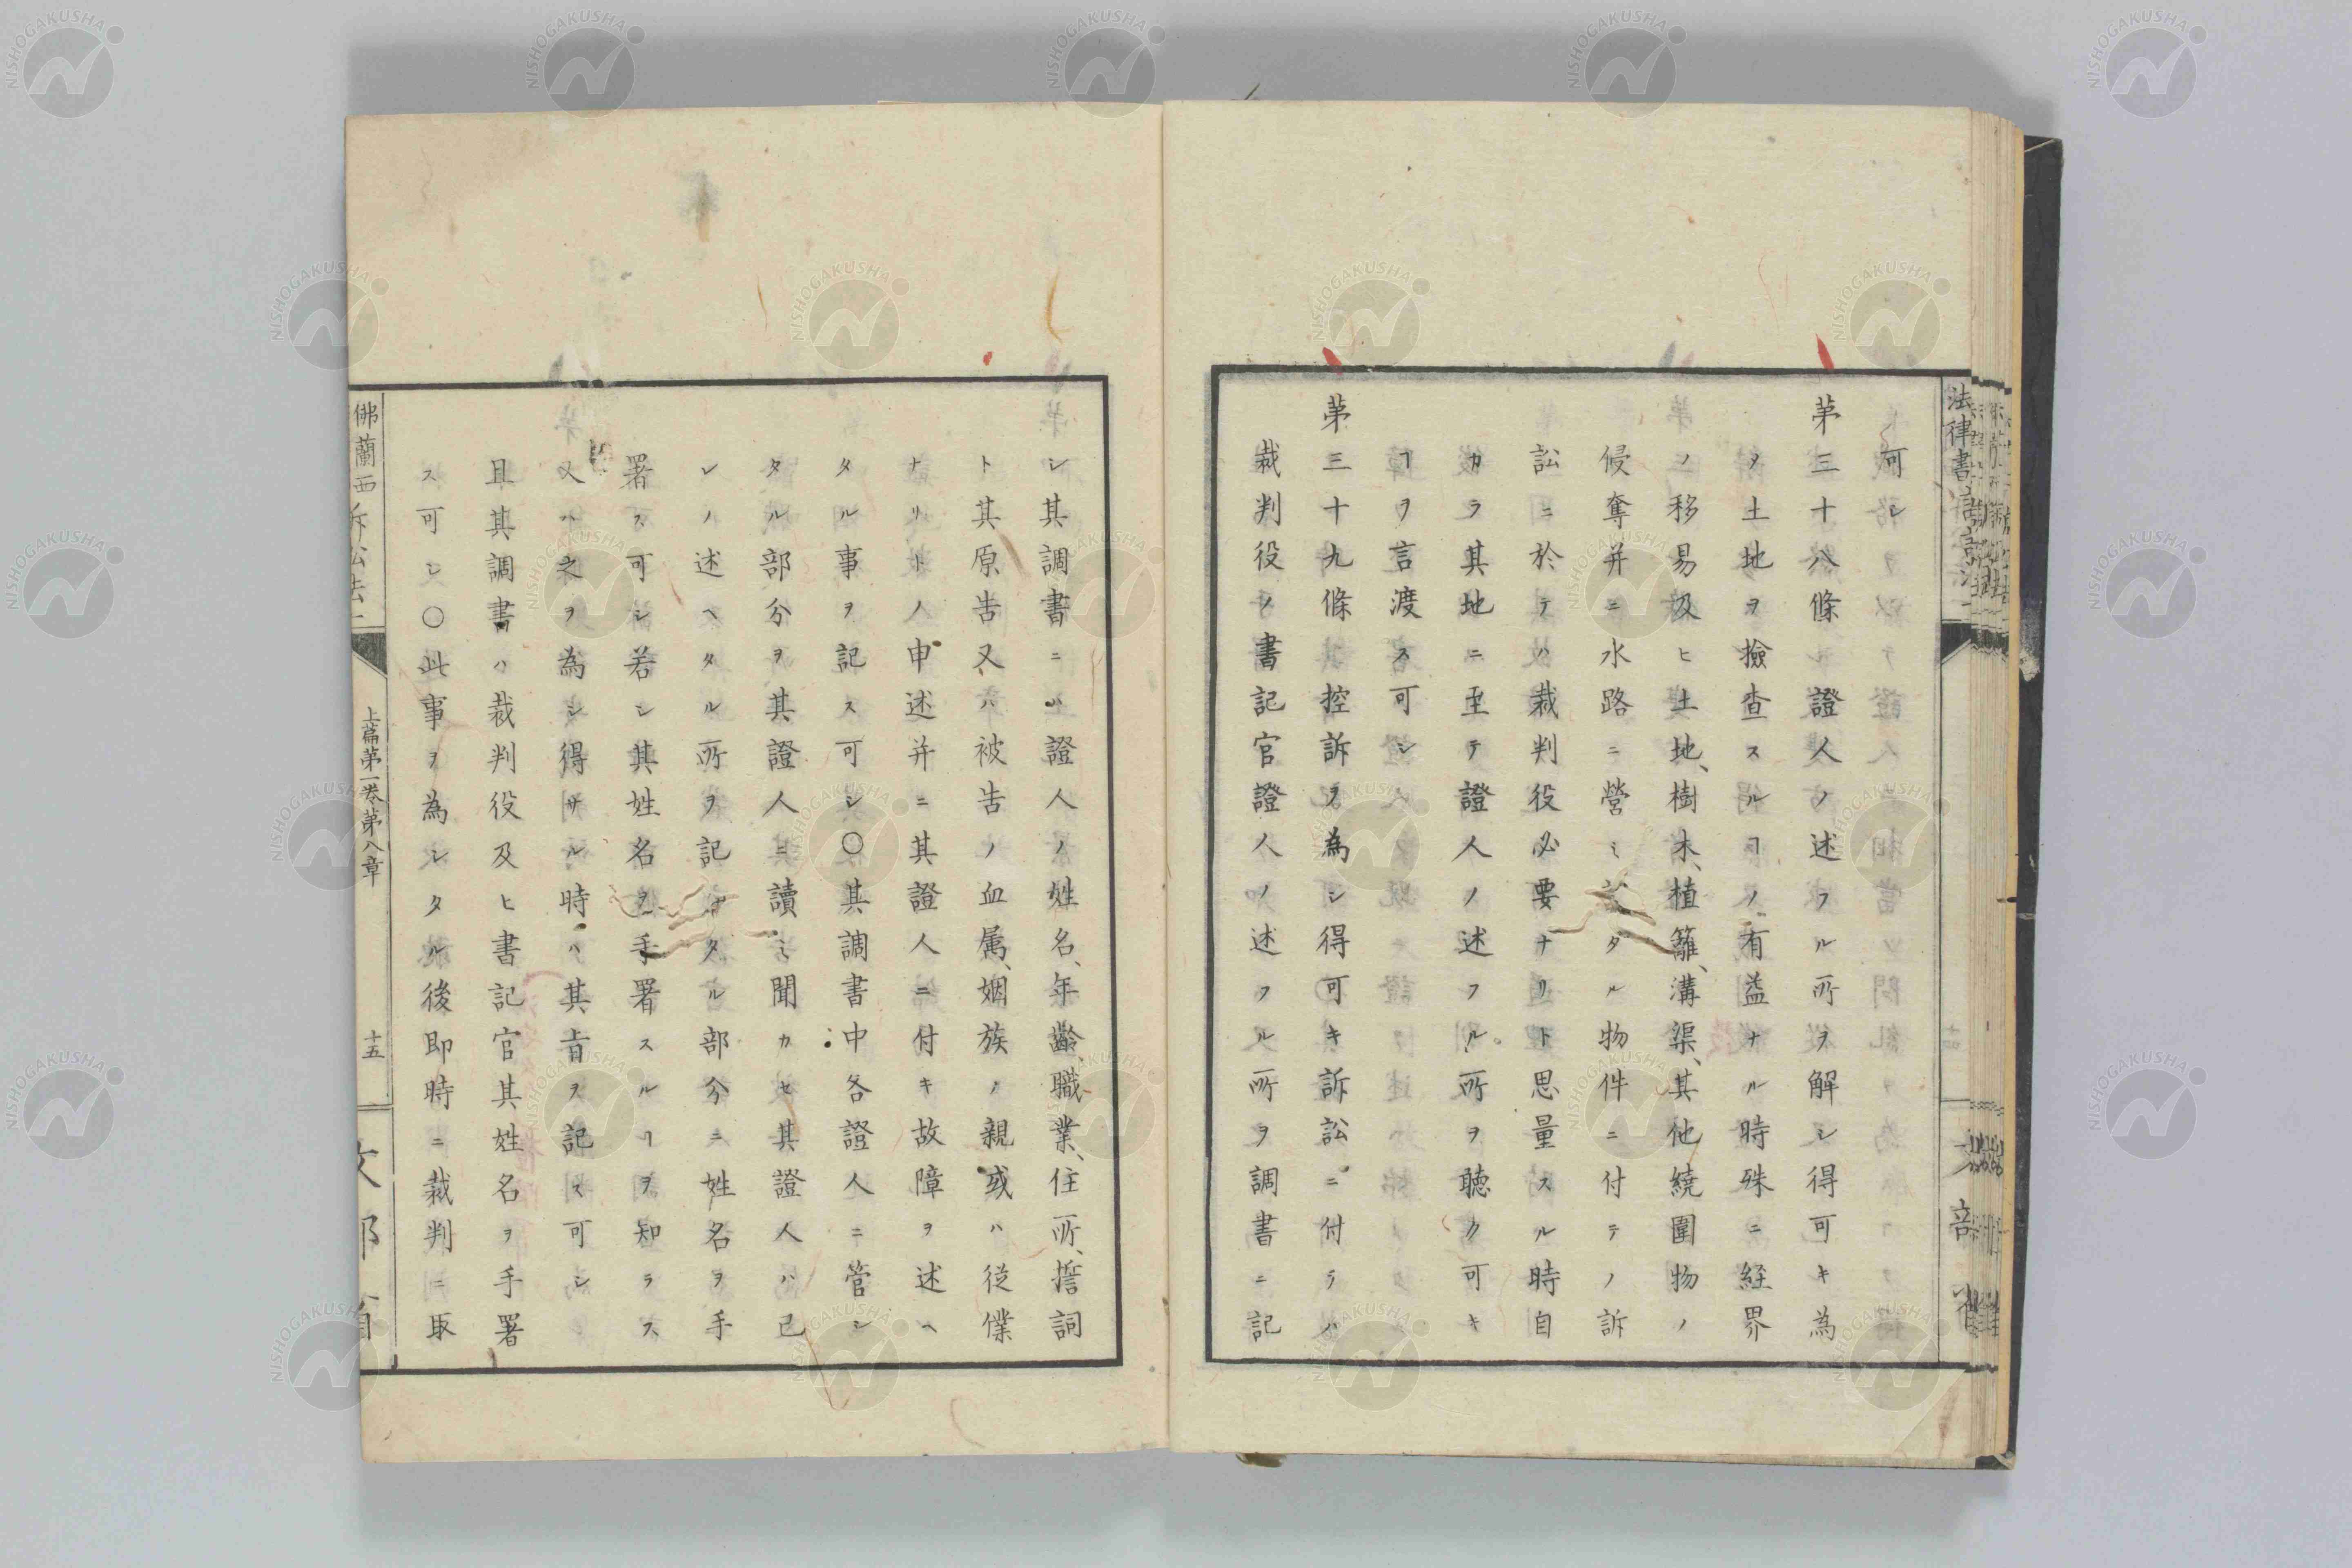 可シ
第三十八條證人ノ述フル所ヲ解シ得可キ為
メ土地ヲ撿査スルヿノ有益ナル時殊ニ経界
ノ移易及ヒ土地、樹木、植籬、溝渠、其他繞圍物ノ
侵奪并ニ水路ニ營ミタル物件ニ付テノ訴
訟ニ於テハ裁判役必要ナリト思量スル時自
カラ其地ニ至テ證人ノ述フル所ヲ聴ク可キ
ヿヲ言渡ス可シ
第三十九條控訴ヲ為シ得可キ訴訟ニ付テハ
裁判役ノ書記官證人ノ述フル所ヲ調書ニ記
シ其調書ニハ證人ノ姓名、年齢、職業、住所、誓詞
ト其原告又ハ被告ノ血属、姻族ノ親或ハ従僕
ナリトノ申述并ニ其證人ニ付キ故障ヲ述ヘ
タル事ヲ記ス可シ〇其調書中各證人ニ管シ
タル部分ヲ其證人ニ讀ミ聞カセ其證人ハ己
レノ述ヘタル所ヲ記シタル部分ニ姓名ヲ手
署ス可シ若シ其姓名ヲ手署スルヿヲ知ラス
又ハ之ヲ為シ得サル時ハ其旨ヲ記ス可シ
且其調書ハ裁判役及ヒ書記官其姓名ヲ手署
ス可シ〇此事ヲ為シタル後即時ニ裁判ニ取
佛蘭西訴訟法一
上篇第一巻第八章
十五
文部省
法律書
文部省
NISHOGAKUSHA